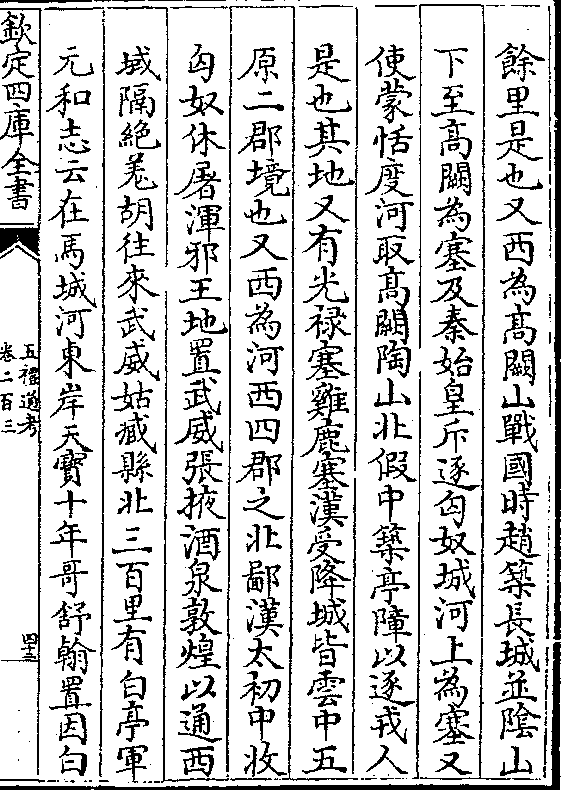 餘里是也又西為髙闕山戰國時趙築長城並隂山
下至髙闕為塞及秦始皇斥逐匈奴城河上為塞又
使蒙恬度河取髙闕陶山北假中築亭障以逐戎人
是也其地又有光禄塞雞鹿塞漢受降城皆雲中五
原二郡境也又西為河西四郡之北鄙漢太初中收
匈奴休屠渾邪王地置武威張掖酒泉敦煌以通西
域隔絶羌胡往來武威姑臧縣北三百里有白亭軍
元和志云在馬城河東岸天寳十年哥舒翰置因白
欽定四庫全書
五禮通考
卷二百三
四十三